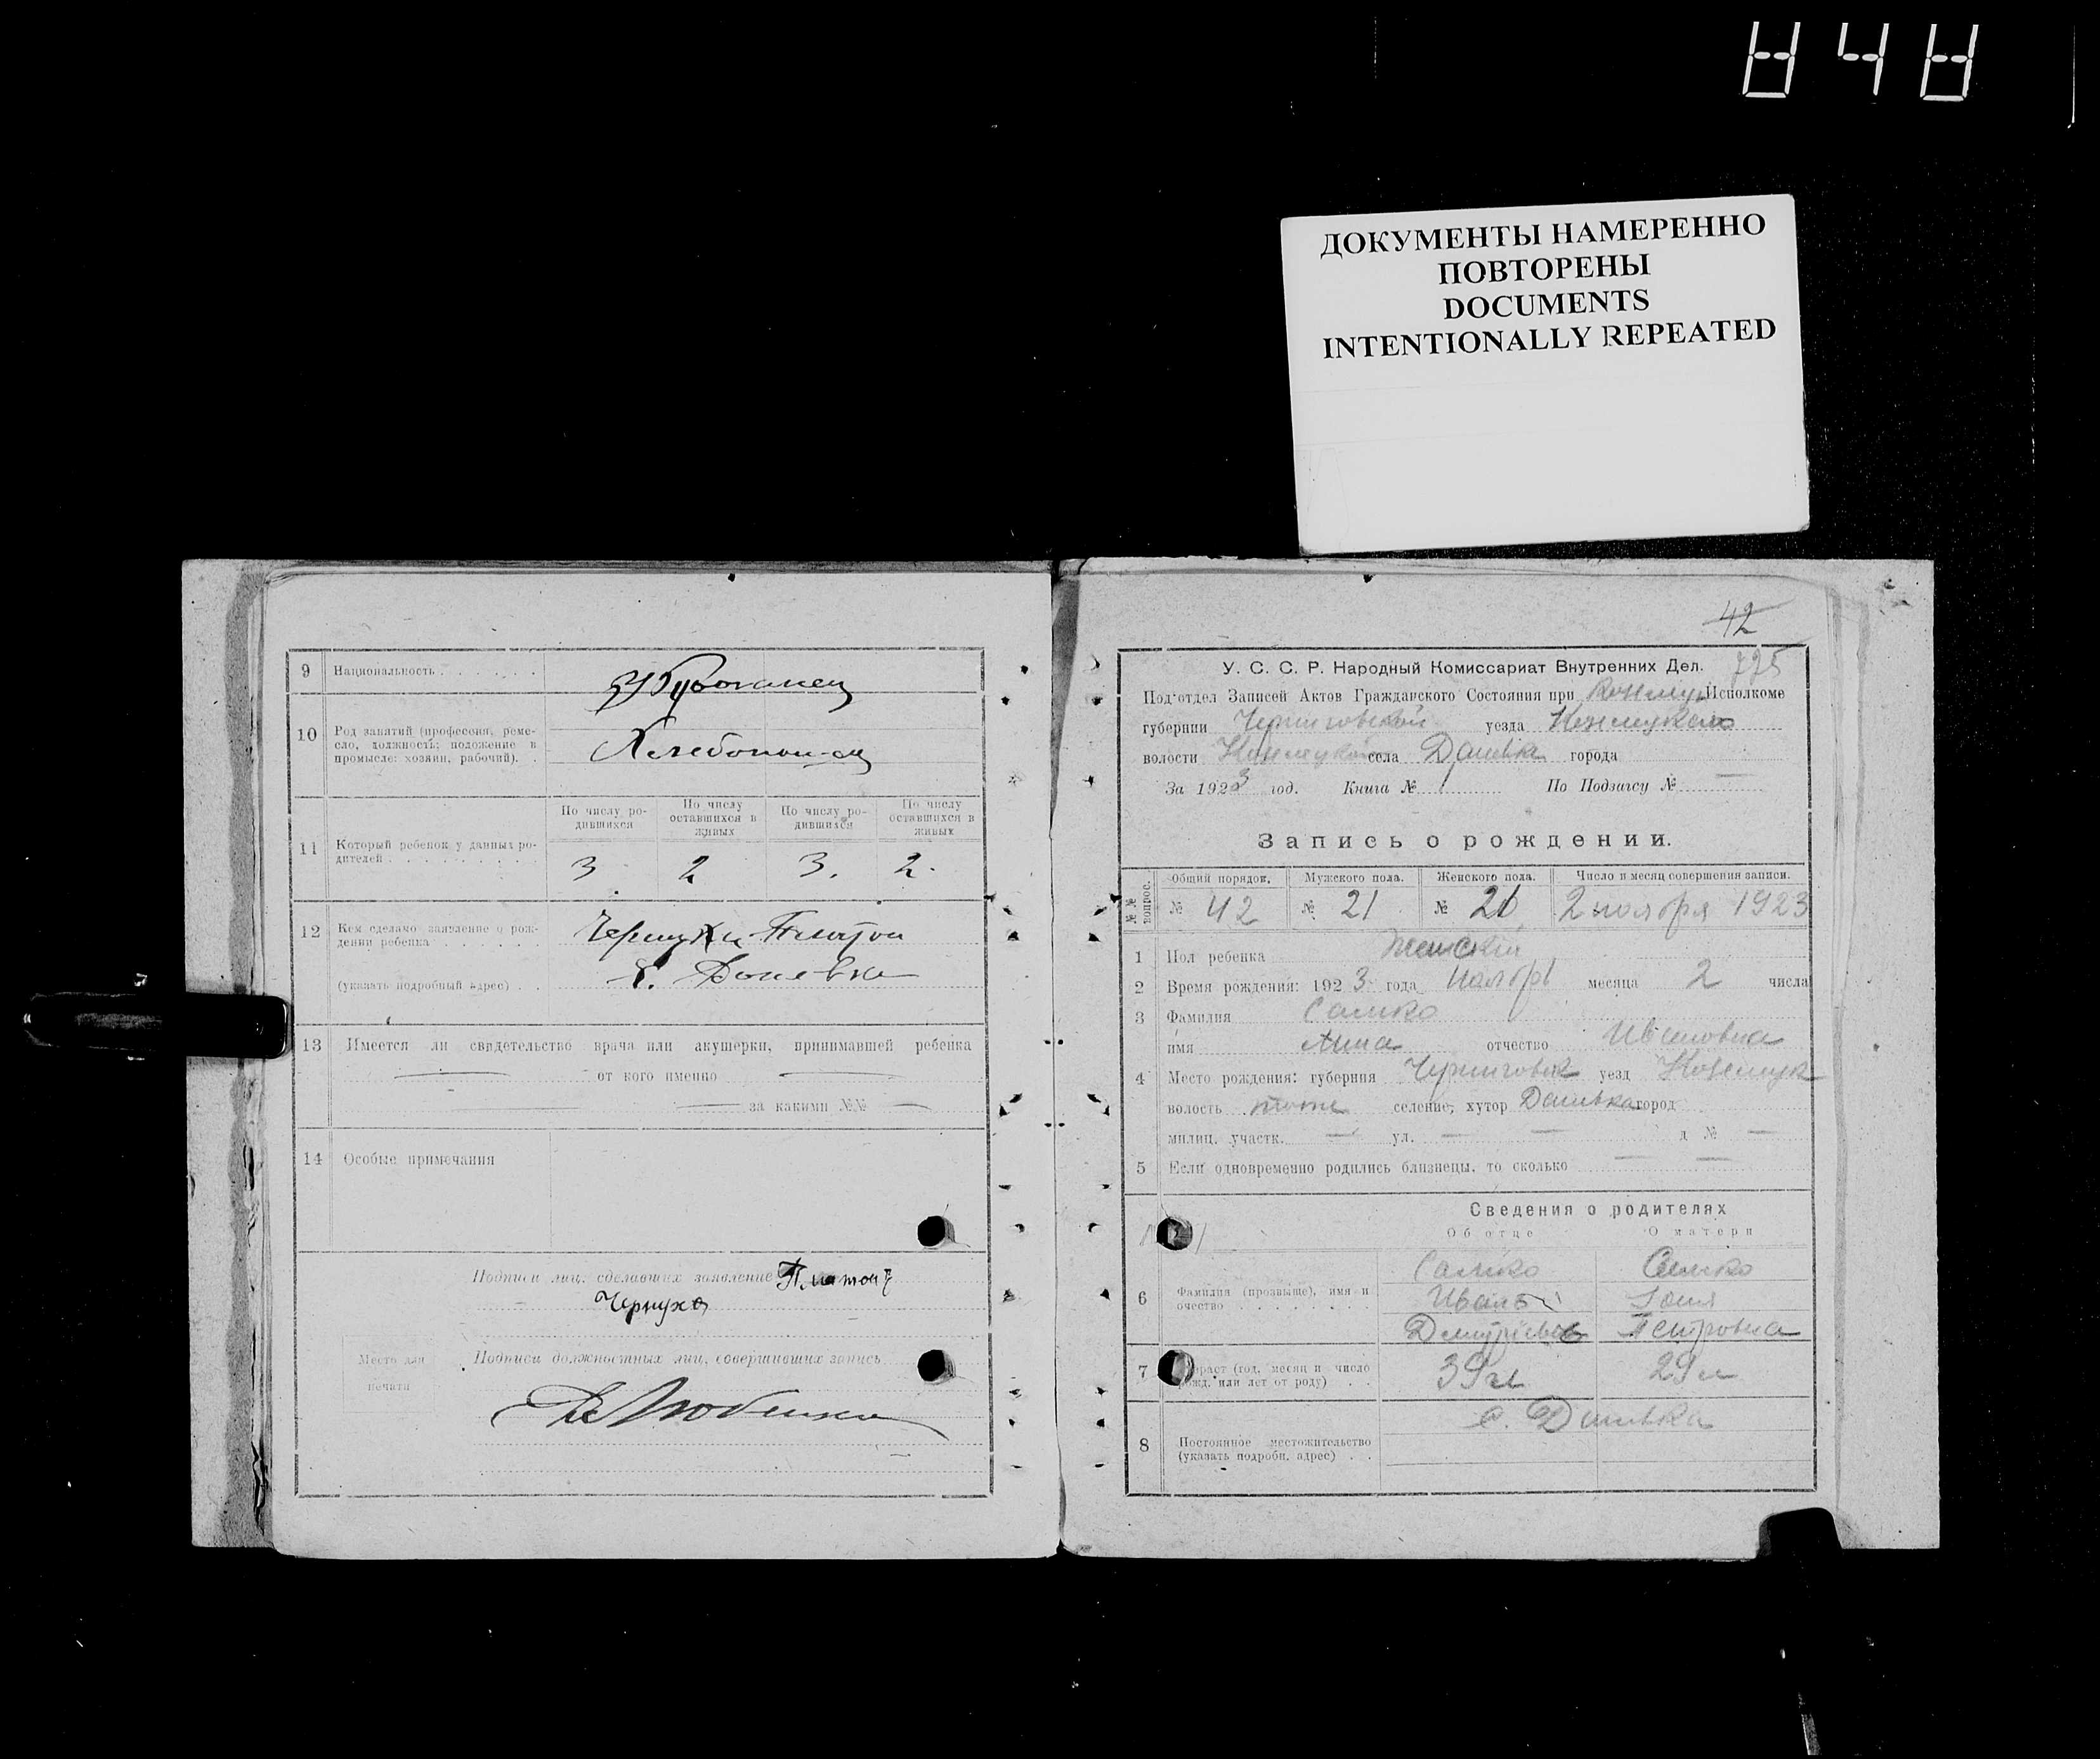 ДОКУМЕНТЫ НАМЕРЕННО
ПОВТОРЕНЫ
DOCUMENTS
INTENTIONALLY REPEATED
9 Национальность
10 Род занятий (профессия, ремесло, должность: положение в промысле: хозяин, рабочий).
11 Который ребенок у данных родителей
По числу родившихся
По числу оставшихся в живых
По числу родившихся
По числу оставшихся в живых
3 2 3. 2.
12 Кем сделано заявление о рождении ребенка
Платон
(указать подробный адрес)
13 Имеется ли свидетельство врача или акушерки, принимавшей ребенка
от кого именно
за какими №№
14 Особые примечания
Подписи лиц, сделавших заявление Платон
Чернуха
Место для
печати
Подписи должностных лиц, совершивших запись
42
775
У. С. С. Р. Народный Комиссариат Внутренних Дел.
Под'отдел Записей Актов Гражданского Состояния при Исполкоме
губернии Черниговской уезда
волости села города
За 1923 год. Книга № 1 По Подзагсу № —
Запись о рождении.
№№ вопрос.
Общий порядок. Мужского пола. Женского пола. Число и месяц совершения записи.
№ 42 № 21 № 21 2 ноября 1923
1 Пол ребенка Женский
2 Время рождения: 1923 года Ноября месяца 2 числа
3 Фамилия Самко
имя Анна отчество Ивановна
4 Место рождения: губерния Черниговск уезд
волость тоже селение, хутор город
милиц. участк. — ул. — — д № —
5 Если одновременно родились близнецы, то сколько — —
Сведения о родителях
Об отце О матери
6 Фамилия (прозвище), имя и отчество
Самко Самко
Иван
Дмитриевич Петровна
7 Возраст (год, месяц и число рожд. или лет от роду)
39 л 29 л
8 Постоянное местожительство (указать подробн. адрес)